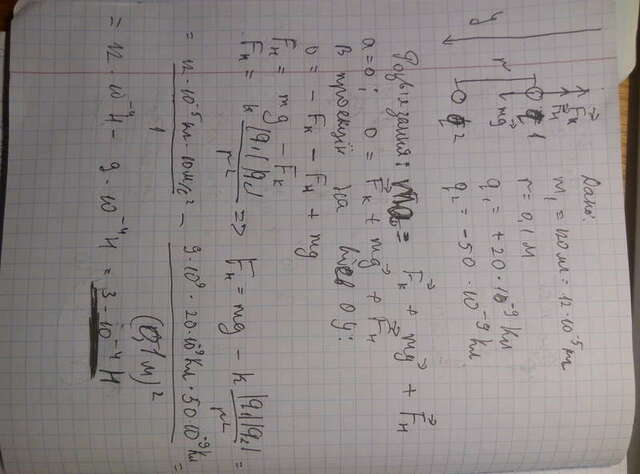 Дано:
m₁ = 120 мг = 12·10⁻⁵ кг
r = 0,1 м
q₁ = +20·10⁻⁹ Кл
q₂ = -50·10⁻⁹ Кл
y
r
F⃗к
F⃗н
mg⃗
1
q 2
= F⃗к + mg⃗ + F⃗н
a = 0; 0 = F⃗к + mg⃗ + F⃗н
В проекции на Oy:
0 = - Fк - Fн + mg
Fн = mg - Fк
Fк = k |q₁||q₂| / r² => Fн = mg - k |q₁||q₂| / r² =
= 12·10⁻⁵ кг · 10 м/с² / 1 - 9·10⁹ · 20·10⁻⁹ Кл · 50·10⁻⁹ Кл / (0,1 м)² =
= 12·10⁻⁴ - 9·10⁻⁴ Н = 3·10⁻⁴ Н